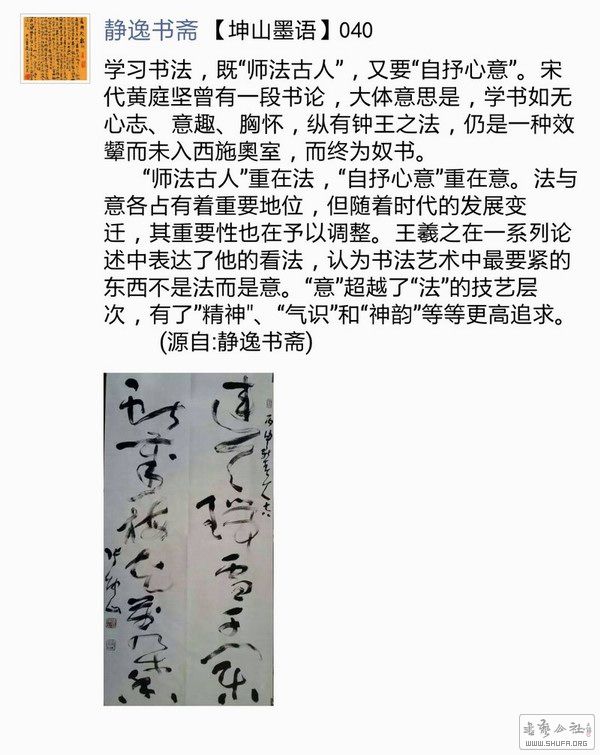 静逸书斋 【坤山墨语】040
学习书法，既“师法古人”，又要“自抒心意”。宋
代黄庭坚曾有一段书论，大体意思是，学书如无
心志、意趣、胸怀，纵有钟王之法，仍是一种效
颦而未入西施奥室，而终为奴书。
“师法古人”重在法，“自抒心意”重在意。法与
意各占有着重要地位，但随着时代的发展变
迁，其重要性也在予以调整。王羲之在一系列论
述中表达了他的看法，认为书法艺术中最要紧的
东西不是法而是意。“意”超越了“法”的技艺层
次，有了”精神"、“气识”和“神韵”等等更高追求。
(源自:静逸书斋)
WWW.SHUFA.ORG